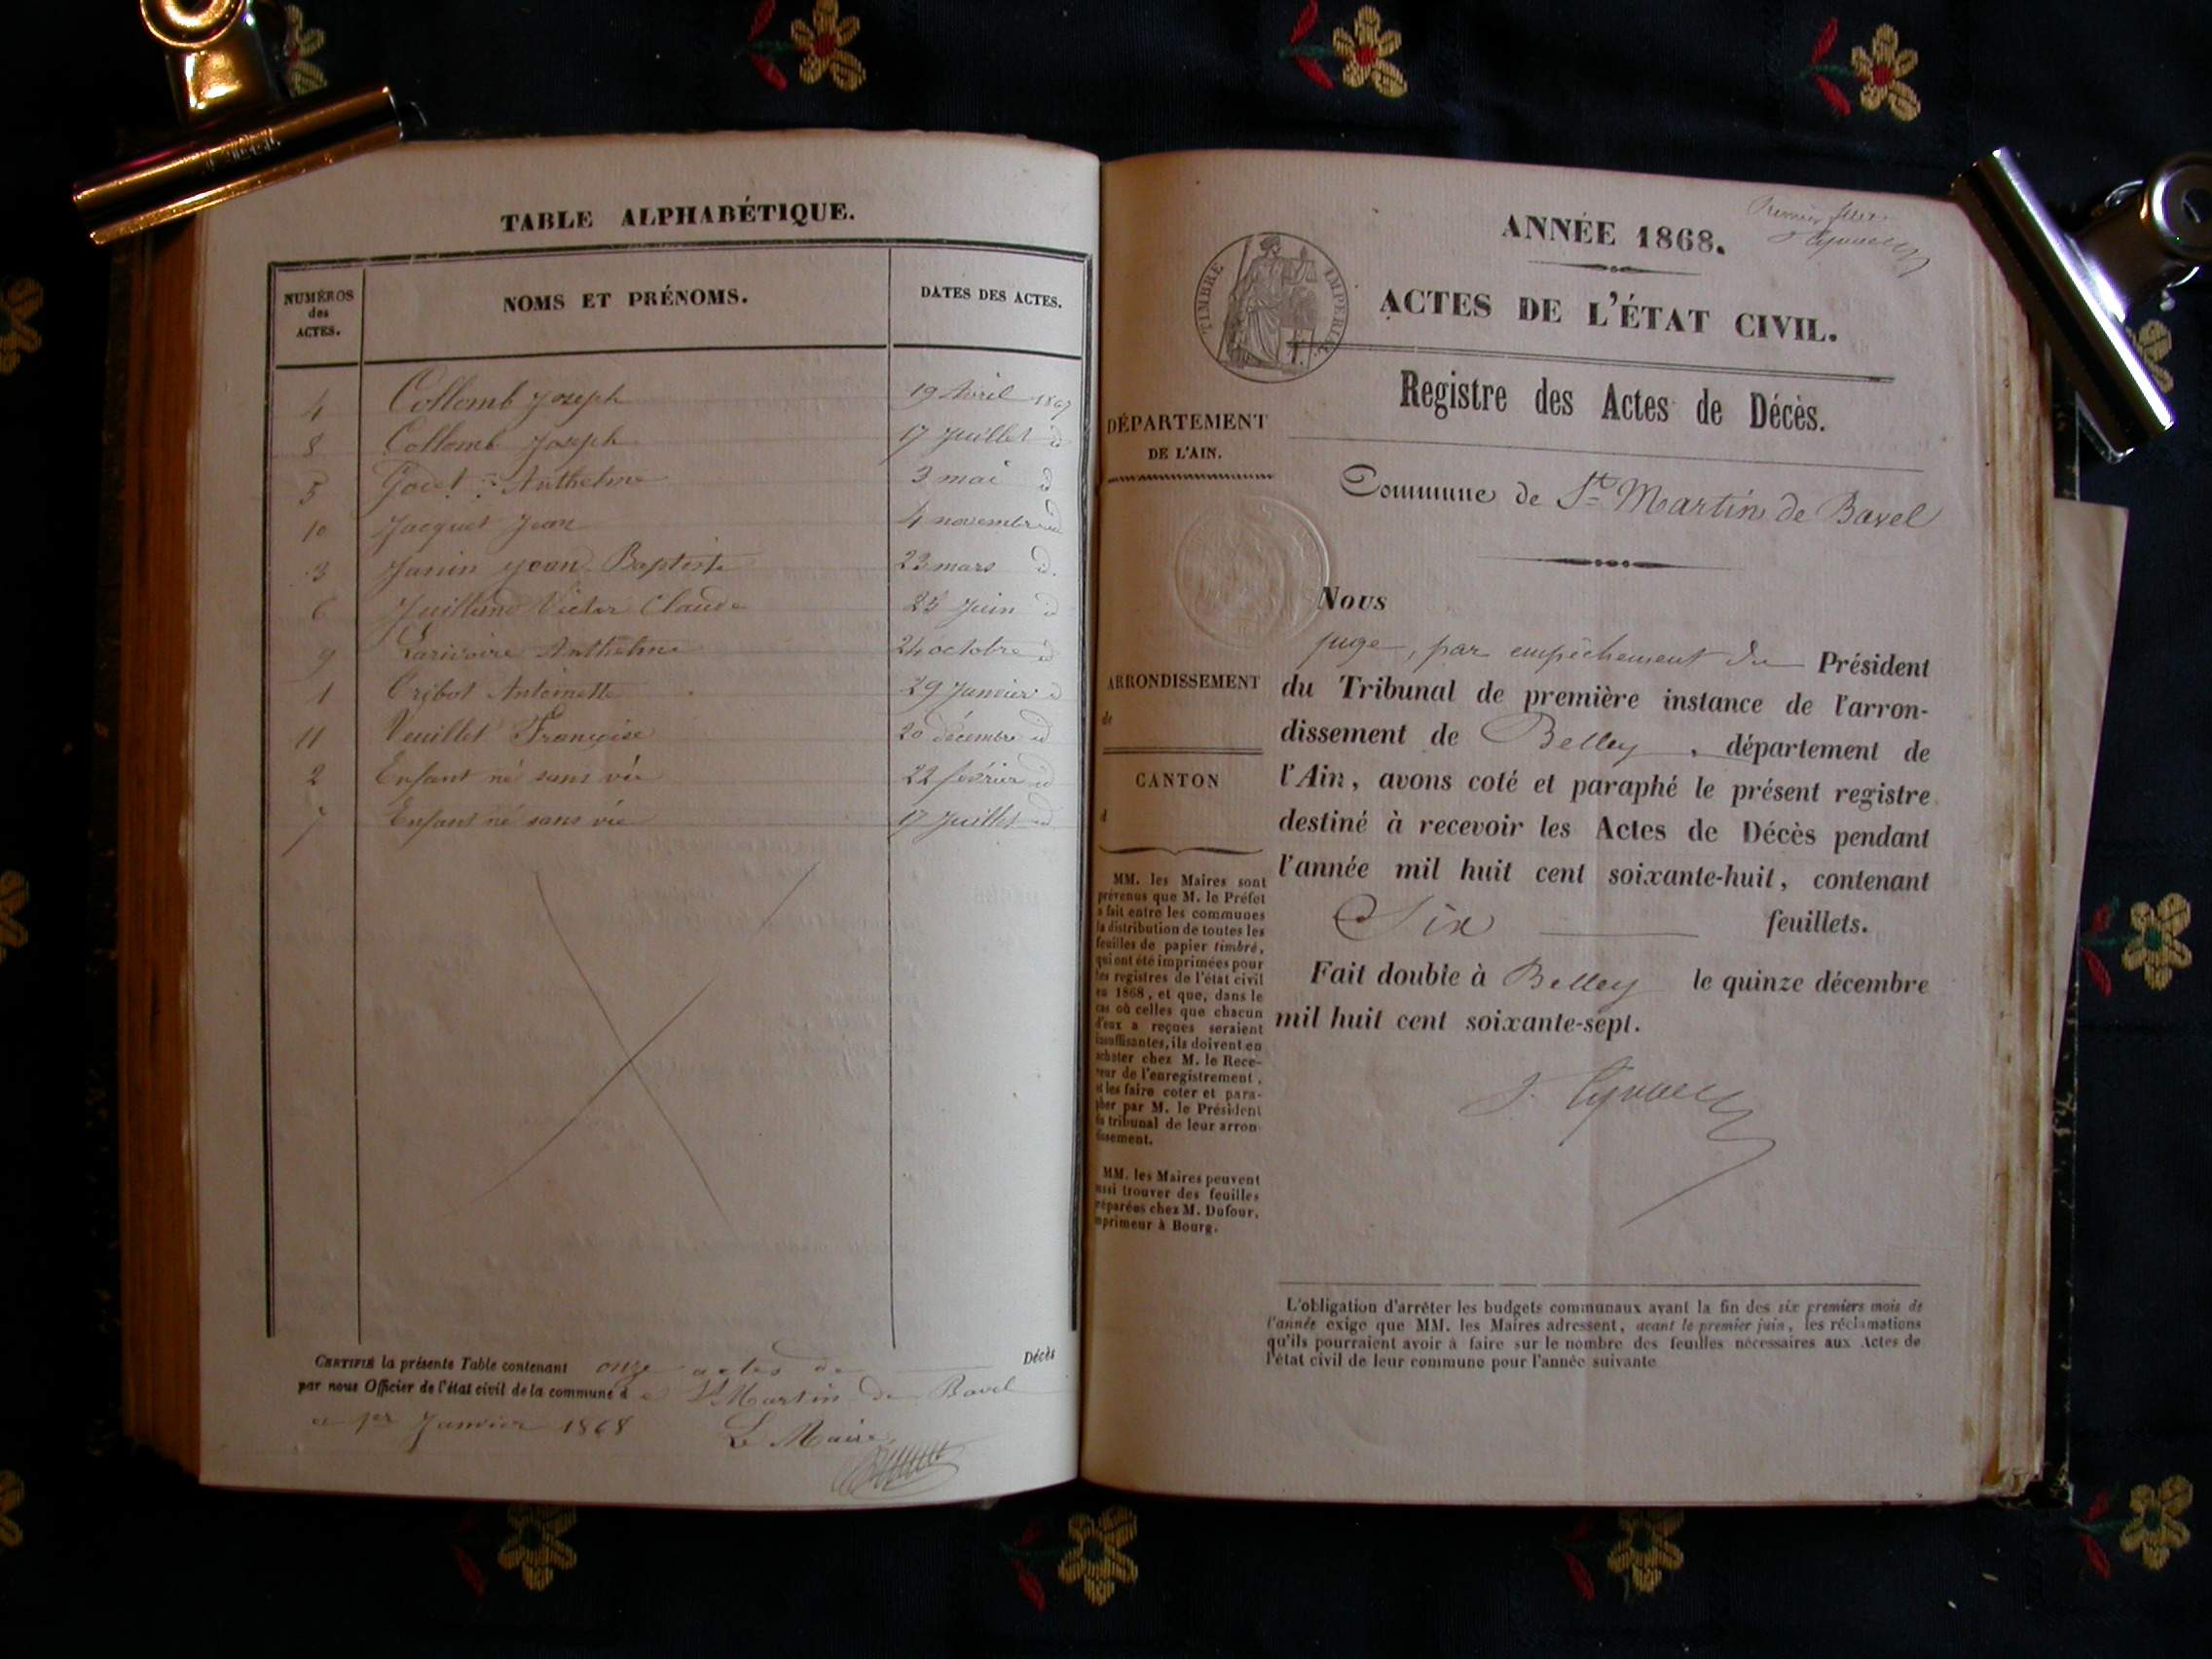 TABLE ALPHABÉTIQUE.
NUMÉROS
des
ACTES.
NOMS ET PRÉNOMS.
DATES DES ACTES.
4 Collomb Joseph 19 Avril 1867
8 Collomb Joseph 17 Juillet id
5 Godet Anthelme 3 mai id
10 Jacquet Jean 4 novembre id
3 Janin Jean Baptiste 23 mars id.
6 Juilland Victor Claude 25 Juin id
9 Larivoire Anthelme 24 octobre id
1 Antoinette 29 Janvier id
11 Veuillet Françoise 20 décembre id
2 Enfant né sans vie 22 février id
7 Enfant né sans vie 17 Juillet id
CERTIFIÉ la présente Table contenant onze actes de Décès
par nous Officier de l'état civil de la commune de St Martin de Bavel
le 1er Janvier 1868 Le Maire
Premier
ANNÉE 1868.
TIMBRE IMPÉRIAL
ACTES DE L'ÉTAT CIVIL.
Registre des Actes de Décès.
DÉPARTEMENT
DE L'AIN.
Commune de St Martin de Bavel
Nous
juge, par empêchement du Président
du Tribunal de première instance de l'arron-
dissement de Belley, département de
l'Ain, avons coté et paraphé le présent registre
destiné à recevoir les Actes de Décès pendant
l'année mil huit cent soixante-huit, contenant
Six feuillets.
Fait double à Belley le quinze décembre
mil huit cent soixante-sept.
ARRONDISSEMENT
de
CANTON
d
MM. les Maires sont
prévenus que M. le Préfet
a fait entre les communes
la distribution de toutes les
feuilles de papier timbré,
qui ont été imprimées pour
les registres de l'état civil
en 1868, et que, dans le
cas où celles que chacun
d'eux a reçues seraient
insuffisantes, ils doivent en
acheter chez M. le Rece-
veur de l'enregistrement,
et les faire coter et para-
pher par M. le Président
du tribunal de leur arron
dissement.
MM. les Maires peuvent
aussi trouver des feuilles
préparées chez M. Dufour,
imprimeur à Bourg.
L'obligation d'arrêter les budgets communaux avant la fin des six premiers mois de
l'année exige que MM. les Maires adressent, avant le premier juin, les réclamations
qu'ils pourraient avoir à faire sur le nombre des feuilles nécessaires aux Actes de
l'état civil de leur commune pour l'année suivante